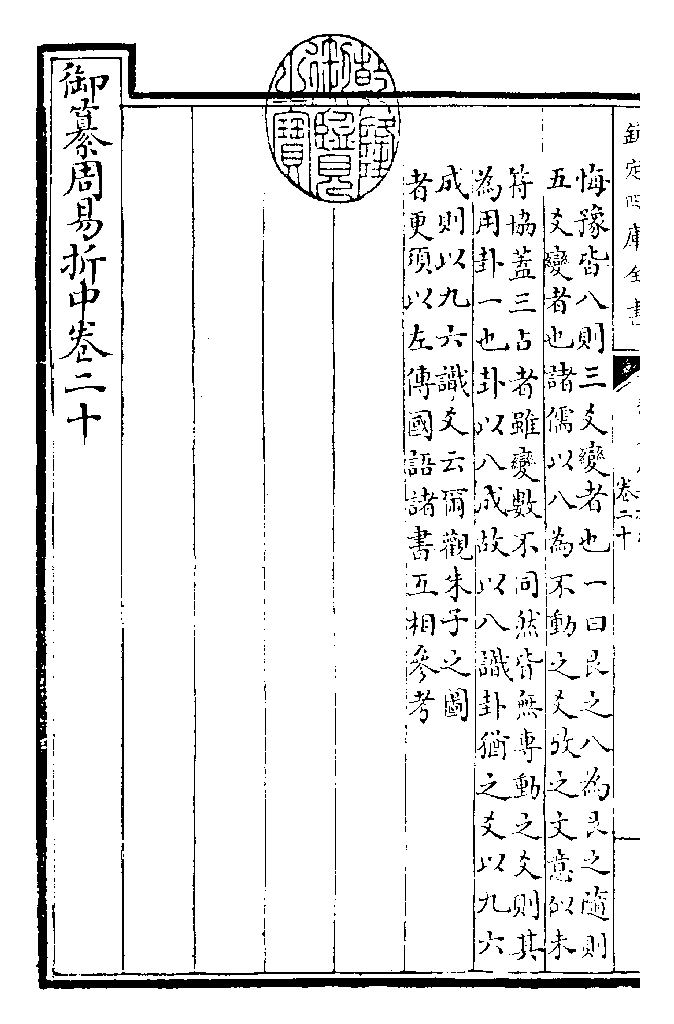 欽定四庫全書
卷二十
悔豫皆八則三爻變者也一曰艮之八為艮之隨則
五爻變者也諸儒以八為不動之爻攷之文意似未
符協蓋三占者雖變數不同然皆無專動之爻則其
為用卦一也卦以八成故以八識卦猶之爻以九六
成則以九六識爻云爾觀朱子之圖
者更須以左傳國語諸書互相參考
御纂周易折中卷二十
乾隆御覽之寶